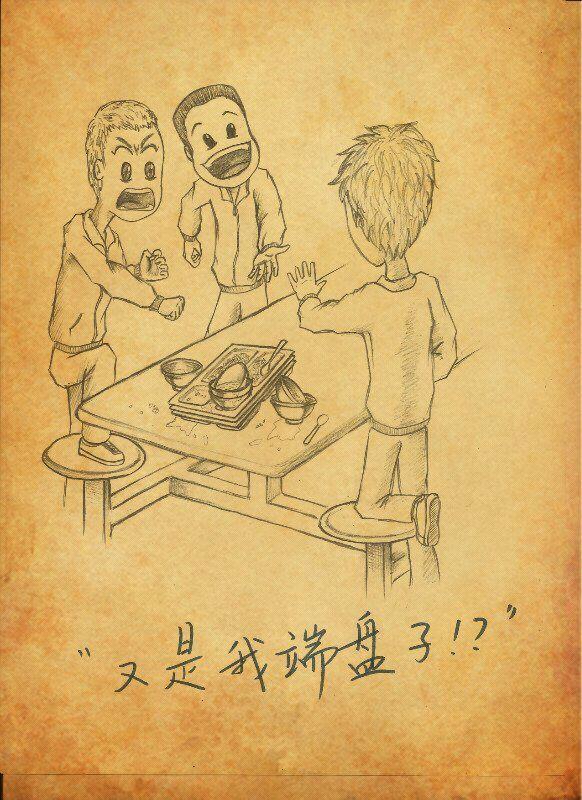 “又是我端盘子!?”